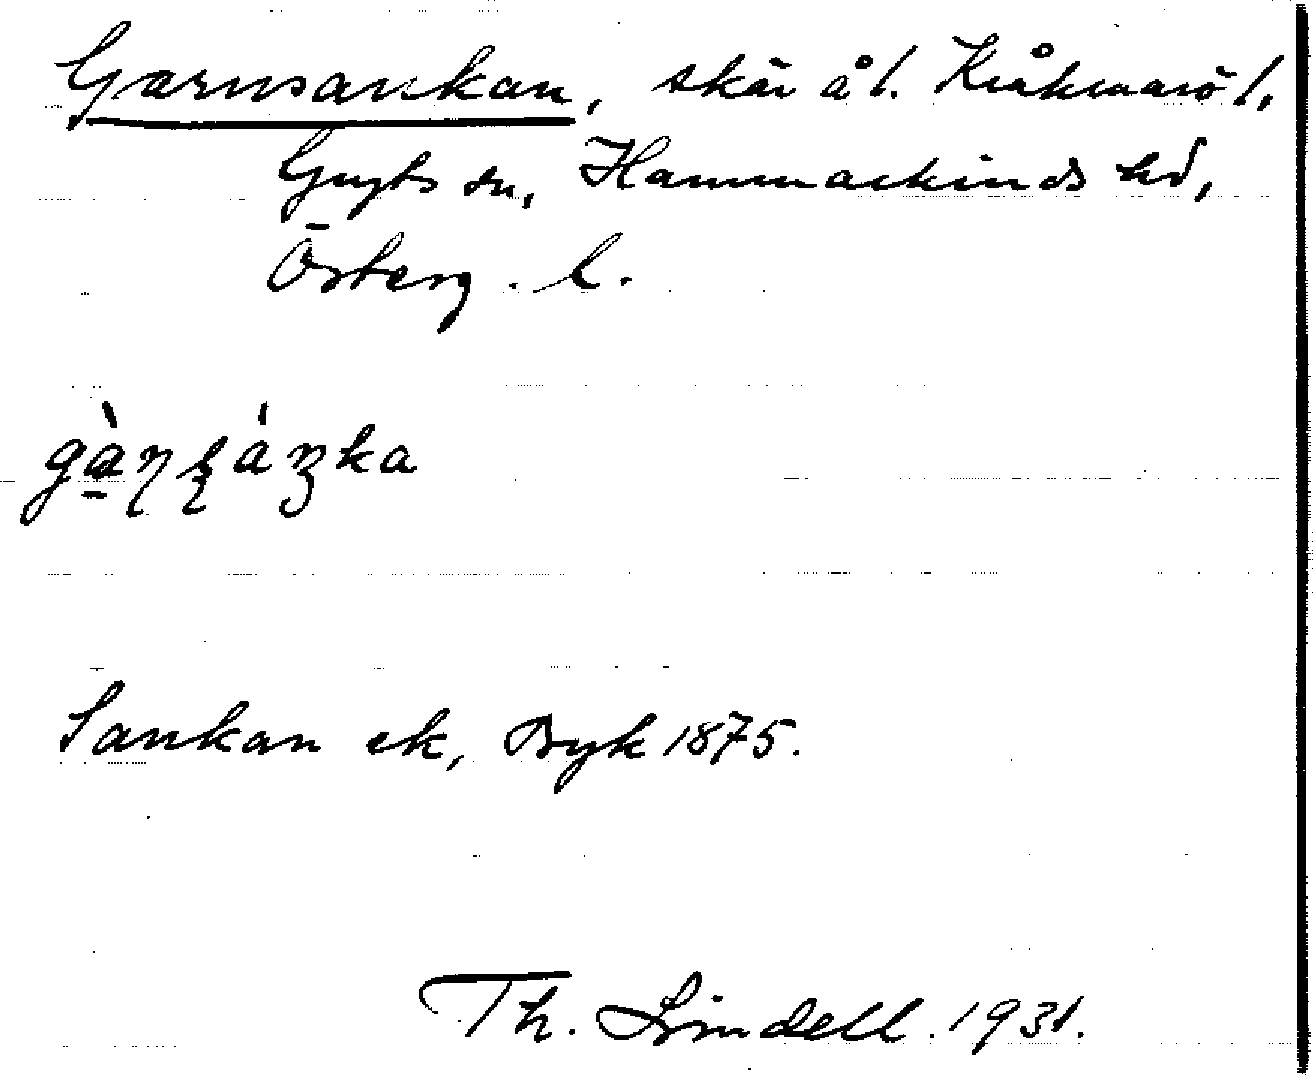 Garnsankan, skär å f. Kråkmarö f.
Gryts sn, Hammarkinds hd,
Österg. l.
gàɳʂáɳka
Sankan ek, Byk 1875.
Th. Lindell. 1931.